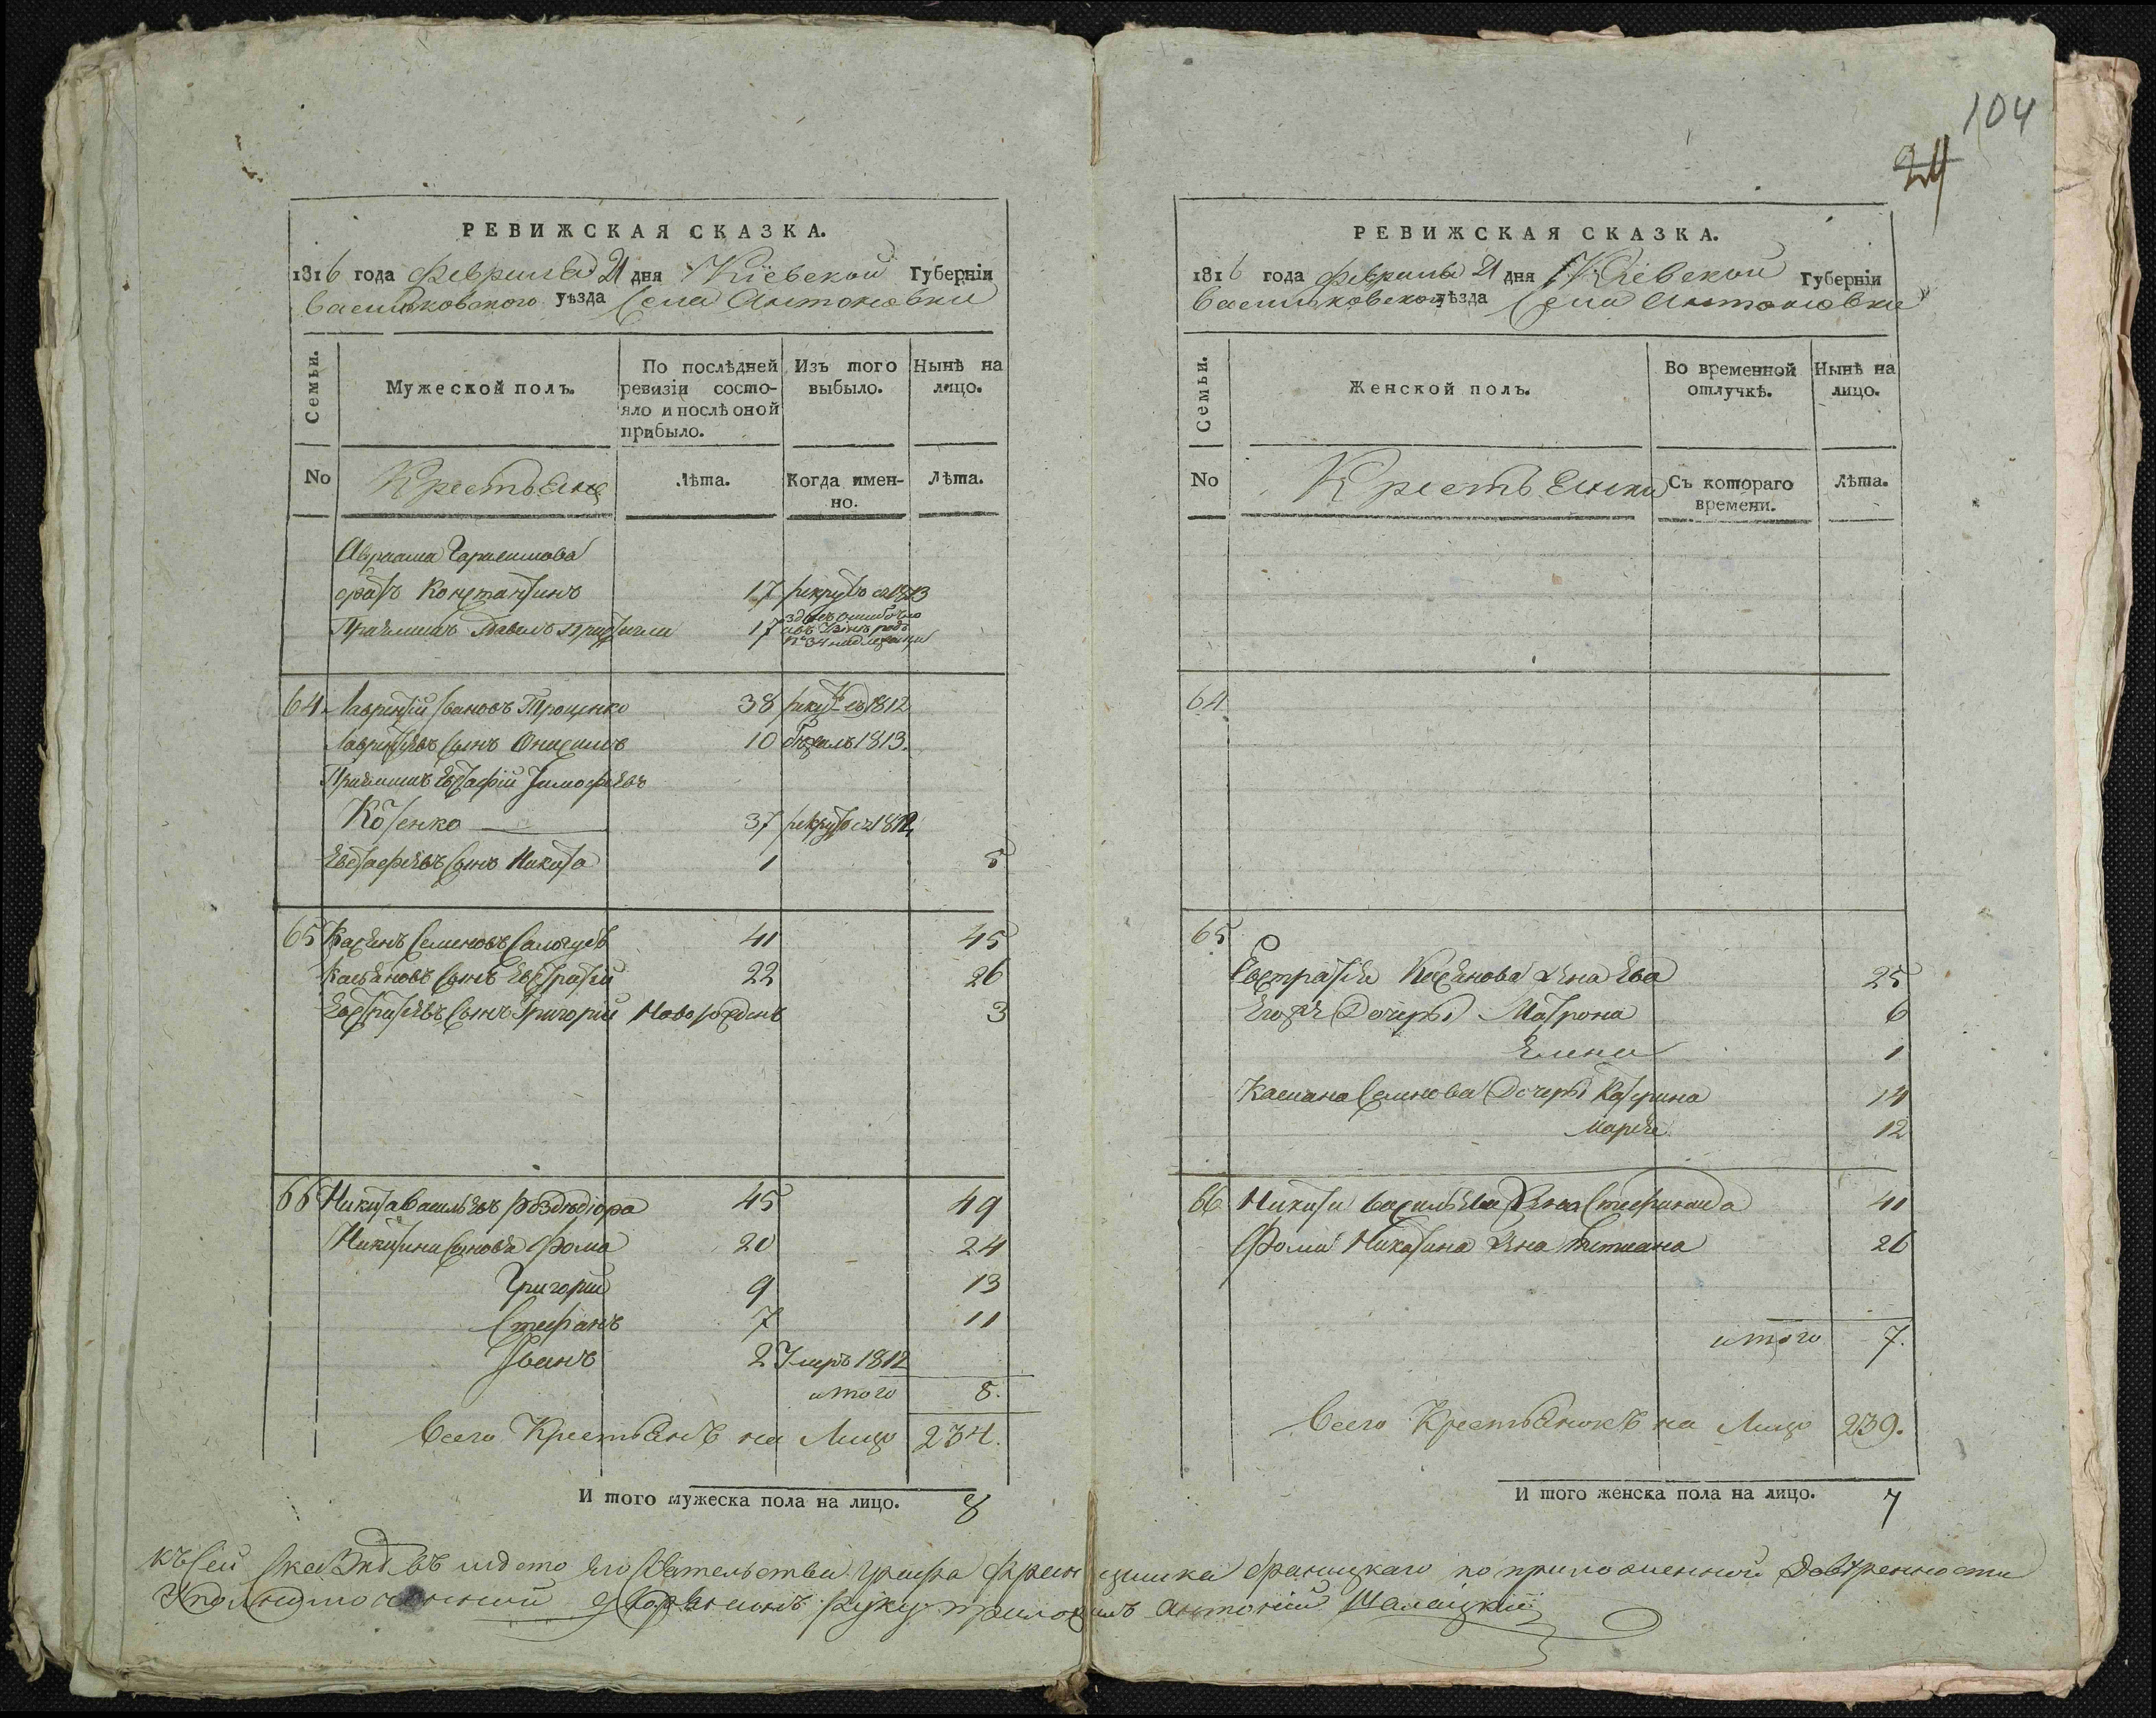 104
24
РЕВИЖСКАЯ СКАЗКА.
1816 года Февраля 21 дня Кіевской Губерніи
Васильковского уѣзда Села Антоновки
Семьи.
Мужеской полъ.
По послѣдней ревизіи состояло и послѣ оной прибыло.
Изъ того выбыло.
Нынѣ на лицо.
No Крестьяне Лѣта. Когда имен-но. Лѣта.
Авраама Гарасимова
братъ Константинъ 17 рекрутъ въ 1813
Приймакъ Павелъ 17 здесь ошибочно
64 Лаврентій Ивановъ Троценко 38 рекрут въ 1812
Лаврентіевъ Сынъ Онисимъ 10 бѣжалъ 1813.
Приймакъ Евстафій Тимофѣевъ
Котенко 37 рекрутъ въ 1812
Евстафіевъ Сынъ Никита 1 5
65 Касянъ Семеновъ Салогубъ 41 45
Касяновъ Сынъ Евстратій 22 26
Евстратіевъ Сынъ Григорій Новорожденъ 3
66 Никита Васильевъ 45 49
Никитини Сыновя Фома 20 24
Григорій 9 13
Стефанъ 7 11
Іванъ 2 Умеръ 1812
итого 8.
Всего Крестьянъ на Лицо 234.
И того мужеска пола на лицо. 8
РЕВИЖСКАЯ СКАЗКА.
1816 года Февраля 21 дня Кіевской Губерніи
Васильковского уѣзда Села Антоновки
Семьи.
Женской полъ.
Во временной отлучкѣ.
Нынѣ на лицо.
No Крестьянки Съ котораго времени. Лѣта.
64
65
Евстратія Касянова жена Ева 25
Егожъ Дочери Матрона 6
Елена 1
Касиана Семенова Дочери Катерина 14
Марія 12
66 Никити Васильева Жена Стефанида 41
Фоми Никитина жена Татиана 26
итого 7.
Всего Крестьянокъ на Лицо 239.
И того женска пола на лицо. 7
Къ Сей Сказкѣ въ мѣсто Его Сіятельства Графа Францишка Браницкаго по приложенной Довѣренности
Уполномоченный дворянинъ руку приложилъ Антоній